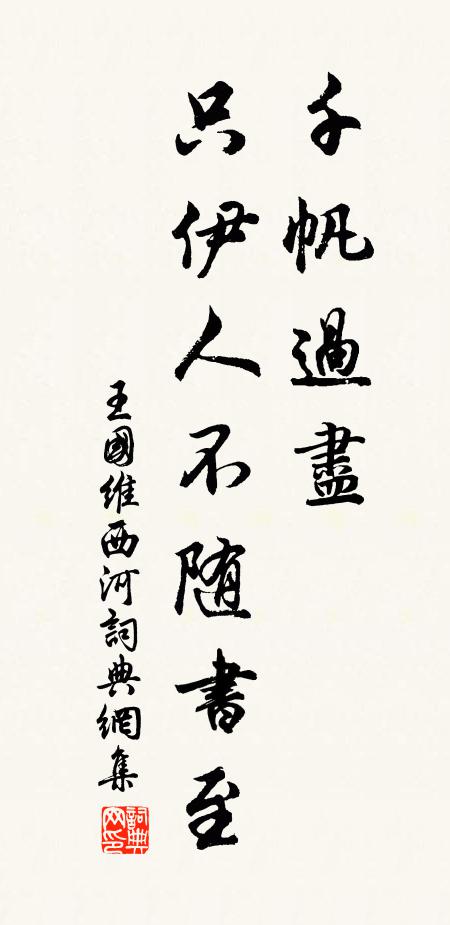 千帆過盡
只伊人不随書至
王國維西河詞典網集
詞典網印